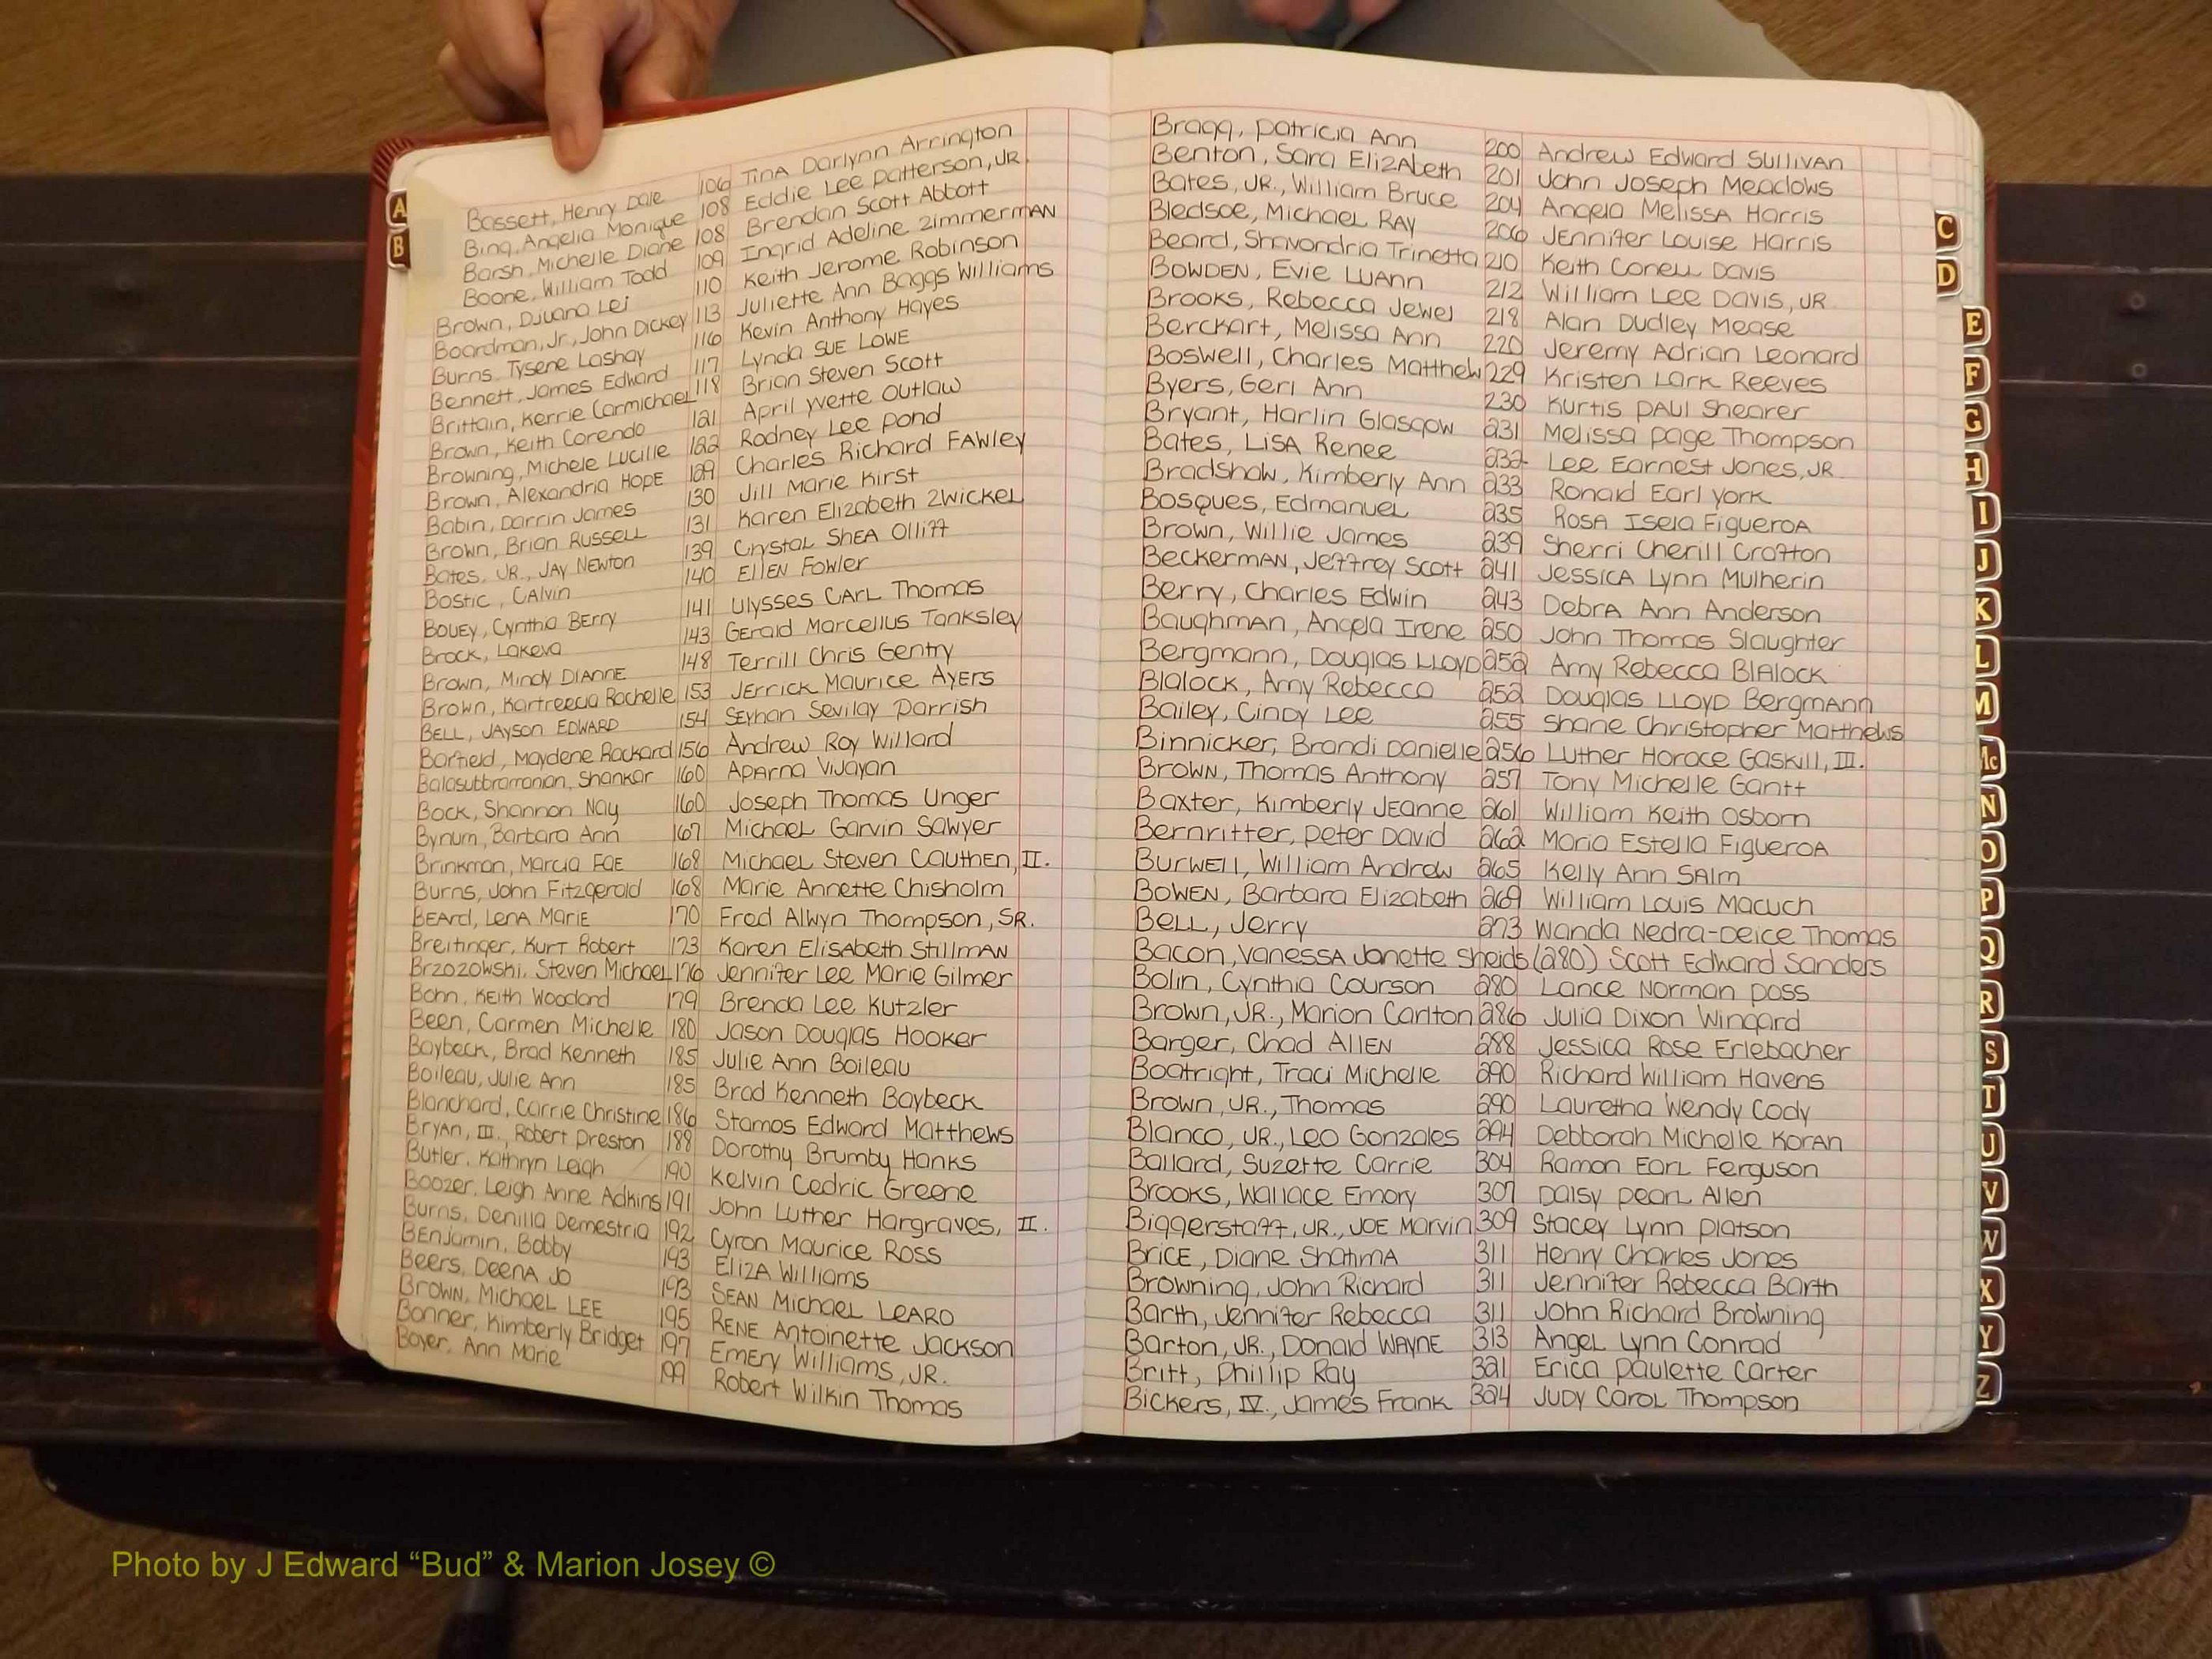 A
B
Bassett, Henry Dale 106 Tina Darlynn Arrington
Bing, Angelia Monique 108 Eddie Lee Patterson, JR.
Barsh, Michelle Diane 108 Brendan Scott Abbott
Boone, William Todd 109 Ingrid Adeline Zimmerman
Brown, Djuana Lei 110 Keith Jerome Robinson
Boardman, Jr., John Dickey 113 Juliette Ann Baggs Williams
Burns, Tysene Lashay 116 Kevin Anthony Hayes
Bennett, James Edward 117 Lynda Sue Lowe
Brittain, Kerrie Carmichael 118 Brian Steven Scott
Brown, Keith Corendo 121 April Yvette Outlaw
Browning, Michele Lucille 122 Rodney Lee Pond
Brown, Alexandria Hope 129 Charles Richard Fawley
Babin, Darrin James 130 Jill Marie Kirst
Brown, Brian Russell 131 Karen Elizabeth Zwickel
Bates, JR., Jay Newton 139 Crystal Shea Olliff
Bostic, Calvin 140 Ellen Fowler
Bouey, Cynthia Berry 141 Ulysses Carl Thomas
Brock, Lakeva 143 Gerald Marcellus Tanksley
Brown, Mindy Dianne 148 Terrill Chris Gentry
Brown, Kartreecia Rochelle 153 Jerrick Maurice Ayers
Bell, Jayson Edward 154 Seyhan Sevilay Parrish
Barfield, Maydene Rockard 156 Andrew Roy Willard
Balasubbramanian, Shankar 160 Aparna Vijayan
Bock, Shannon Nay 160 Joseph Thomas Unger
Bynum, Barbara Ann 167 Michael Garvin Sawyer
Brinkman, Marcia Fae 168 Michael Steven Cauthen, II.
Burns, John Fitzgerald 168 Marie Annette Chisholm
Beard, Lena Marie 170 Fred Alwyn Thompson, SR.
Breitinger, Kurt Robert 173 Karen Elisabeth Stillman
Brzozowski, Steven Michael 176 Jennifer Lee Marie Gilmer
Bohn, Keith Woodard 179 Brenda Lee Kutzler
Been, Carmen Michelle 180 Jason Douglas Hooker
Baybeck, Brad Kenneth 185 Julie Ann Boileau
Boileau, Julie Ann 185 Brad Kenneth Baybeck
Blanchard, Carrie Christine 186 Stamos Edward Matthews
Bryan, III., Robert Preston 188 Dorothy Brumby Hanks
Butler, Kathryn Leigh 190 Kelvin Cedric Greene
Boozer, Leigh Anne Adkins 191 John Luther Hargraves, II.
Burns, Denilla Demestria 192 Cyron Maurice Ross
Benjamin, Bobby 193 Eliza Williams
Beers, Deena Jo 193 Sean Michael Learo
Brown, Michael Lee 195 Rene Antoinette Jackson
Bonner, Kimberly Bridget 197 Emery Williams, JR.
Boyer, Ann Marie 199 Robert Wilkin Thomas
Bragg, Patricia Ann 200 Andrew Edward Sullivan
Benton, Sara Elizabeth 201 John Joseph Meadows
Bates, JR., William Bruce 204 Angela Melissa Harris
Bledsoe, Michael Ray 206 Jennifer Louise Harris
Beard, Shavondria Trinetta 210 Keith Conell Davis
Bowden, Evie LuAnn 212 William Lee Davis, JR
Brooks, Rebecca Jewel 218 Alan Dudley Mease
Berckart, Melissa Ann 220 Jeremy Adrian Leonard
Boswell, Charles Matthew 229 Kristen Lark Reeves
Byers, Geri Ann 230 Kurtis Paul Shearer
Bryant, Harlin Glasgow 231 Melissa Page Thompson
Bates, Lisa Renee 232 Lee Earnest Jones, JR
Bradshaw, Kimberly Ann 233 Ronald Earl York
Bosques, Edmanuel 235 Rosa Isela Figueroa
Brown, Willie James 239 Sherri Cherill Crofton
Beckerman, Jeffrey Scott 241 Jessica Lynn Mulherin
Berry, Charles Edwin 243 Debra Ann Anderson
Baughman, Angela Irene 250 John Thomas Slaughter
Bergmann, Douglas Lloyd 252 Amy Rebecca Blalock
Blalock, Amy Rebecca 252 Douglas Lloyd Bergmann
Bailey, Cindy Lee 255 Shane Christopher Matthews
Binnicker, Brandi Danielle 256 Luther Horace Gaskill, III.
Brown, Thomas Anthony 257 Tony Michelle Gantt
Baxter, Kimberly Jeanne 261 William Keith Osborn
Bernritter, Peter David 262 Maria Estella Figueroa
Burwell, William Andrew 265 Kelly Ann Salm
Bowen, Barbara Elizabeth 269 William Louis Macuch
Bell, Jerry 273 Wanda Nedra-Deice Thomas
Bacon, Vanessa Janette Sheids (280) Scott Edward Sanders
Bolin, Cynthia Courson 280 Lance Norman Doss
Brown, JR., Marion Carlton 286 Julia Dixon Wingard
Barger, Chad Allen 288 Jessica Rose Erlebacher
Boatright, Traci Michelle 290 Richard William Havens
Brown, JR., Thomas 290 Lauretha Wendy Cody
Blanco, JR., Leo Gonzales 294 Debborah Michelle Koran
Ballard, Suzette Carrie 304 Ramon Earl Ferguson
Brooks, Wallace Emory 307 Daisy Pearl Allen
Biggerstaff, JR., Joe Marvin 309 Stacey Lynn Platson
Brice, Diane Shatima 311 Henry Charles Jones
Browning, John Richard 311 Jennifer Rebecca Barth
Barth, Jennifer Rebecca 311 John Richard Browning
Barton, JR., Donald Wayne 313 Angel Lynn Conrad
Britt, Phillip Ray 321 Erica Paulette Carter
Bickers, IV., James Frank 324 Judy Carol Thompson
C
D
E
F
G
H
I
J
K
L
M
Mc
N
O
P
Q
R
S
T
U
V
W
X
Y
Z
Photo by J Edward “Bud” & Marion Josey ©